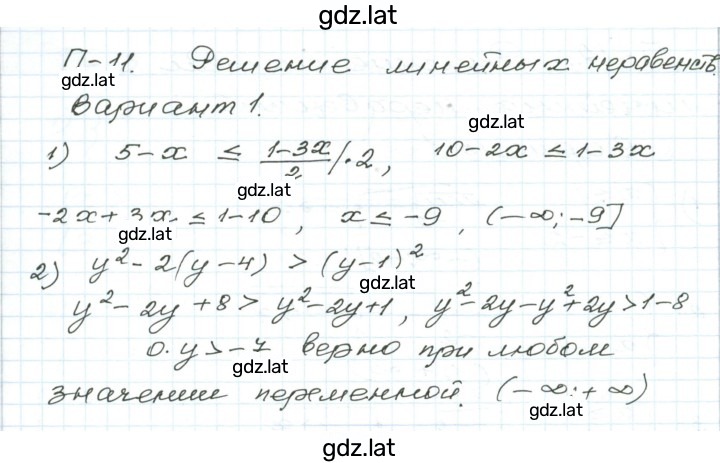 gdz.lat
П-11. Решение линейных неравенств.
gdz.lat
Вариант 1.
gdz.lat
1) 5-x ≤ (1-3x)/2 /·2, 10-2x ≤ 1-3x
gdz.lat
-2x+3x ≤ 1-10, x ≤ -9, (-∞;-9]
gdz.lat
2) y²-2(y-4) > (y-1)²
gdz.lat
y²-2y+8 > y²-2y+1, y²-2y-y²+2y>1-8
0·y>-7 верно при любом
gdz.lat
значении переменной. (-∞;+∞)
gdz.lat
gdz.lat